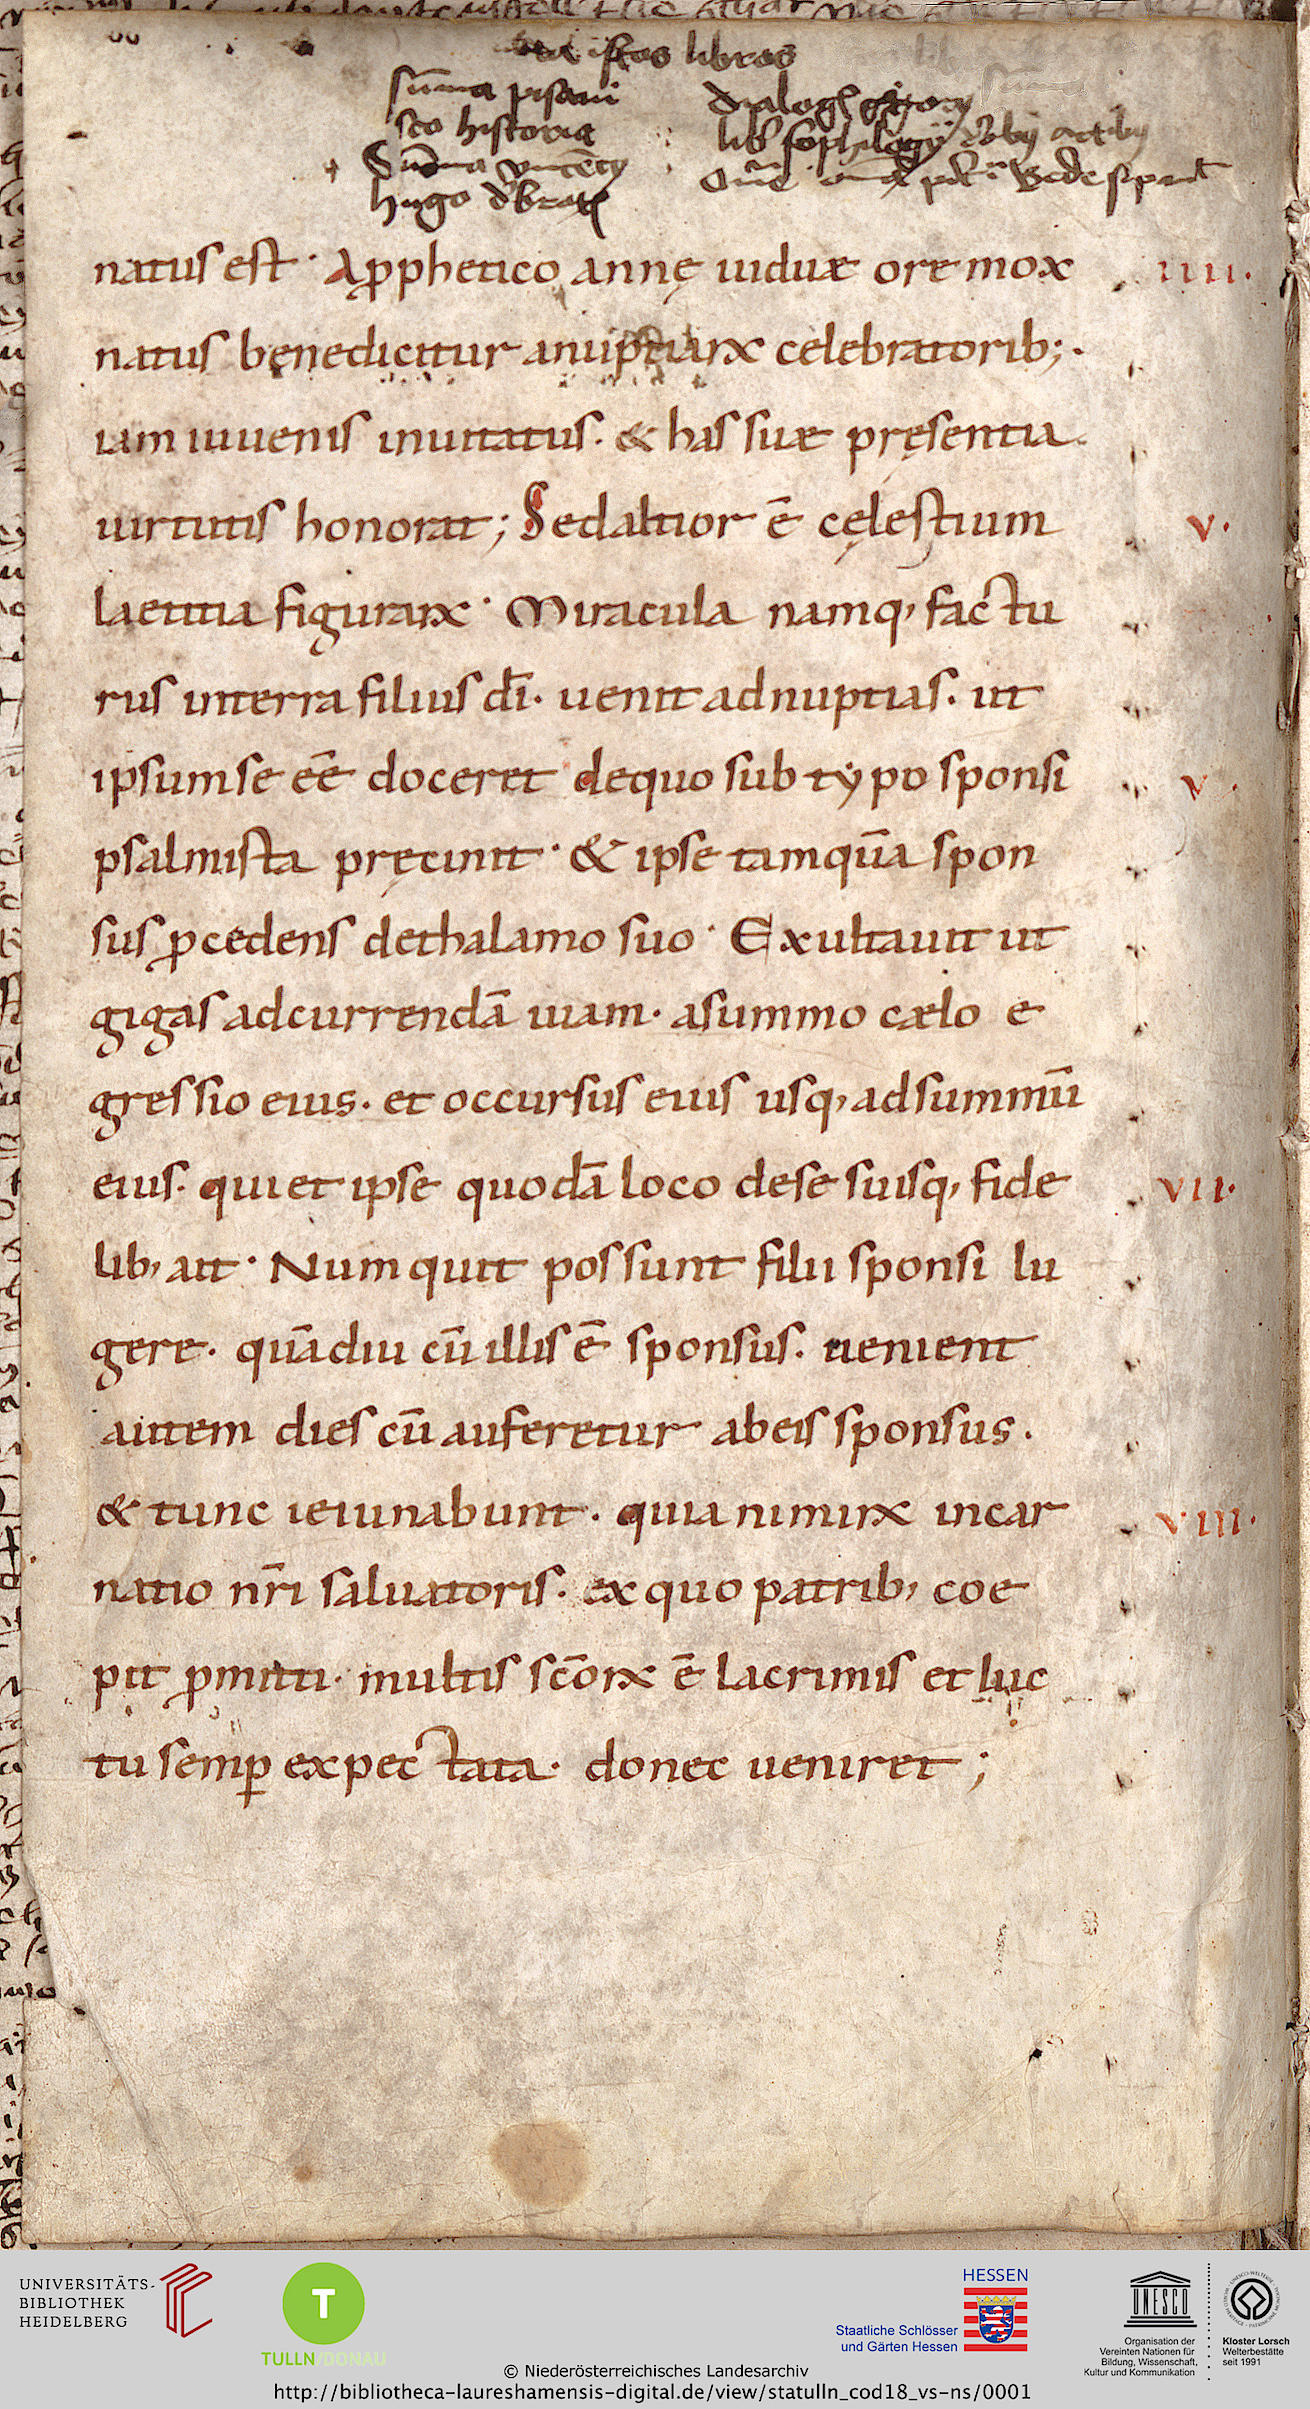 istos libros
sūma pisani
sco historia
Sūma vincēcij
hugo
dyalogꝰ
lib sophilogij
natus est · Apphetico annę uiduæ ore mox
natus benedicitur anuptiarꝝ celebratorib; ·
iam iuuenis inuitatus · & has suæ pręsentia
uirtutis honorat; Sed altior ē cęlestium
laetitia figurarꝝ · Miracula namq, factu
rus interra filius dī · uenit adnuptias · ut
ipsum se eē doceret dequo sub typo sponsi
psalmista pręcinit · & ipse tamquā spon
sus ꝓcedens dethalamo suo · Exultauit ut
gigas adcurrendā uiam · asummo cælo e
gressio eius · et occursus eius usq, adsummū
eius · qui et ipse quodā loco dese suisq, fide
lib, ait · Numquit possunt filii sponsi lu
gere · quādiu cū illis ē sponsus · uenient
autem dies cū auferetur abeis sponsus ·
& tunc ieiunabunt · quia nimirꝝ incar
natio nr̄i saluatoris · ex quo patrib, coe
pit ꝓmitti · multis sc̄orꝝ ē lacrimis et luc
tu semꝑ expectata · donec ueniret ;
IIII ·
V ·
V ·
VII ·
VIII ·
UNIVERSITÄTS-
BIBLIOTHEK
HEIDELBERG
T
TULLN/DONAU
HESSEN
Staatliche Schlösser
und Gärten Hessen
UNESCO
Organisation der
Vereinten Nationen für
Bildung, Wissenschaft,
Kultur und Kommunikation
Kloster Lorsch
Welterbestätte
seit 1991
© Niederösterreichisches Landesarchiv
http://bibliotheca-laureshamensis-digital.de/view/statulln_cod18_vs-ns/0001